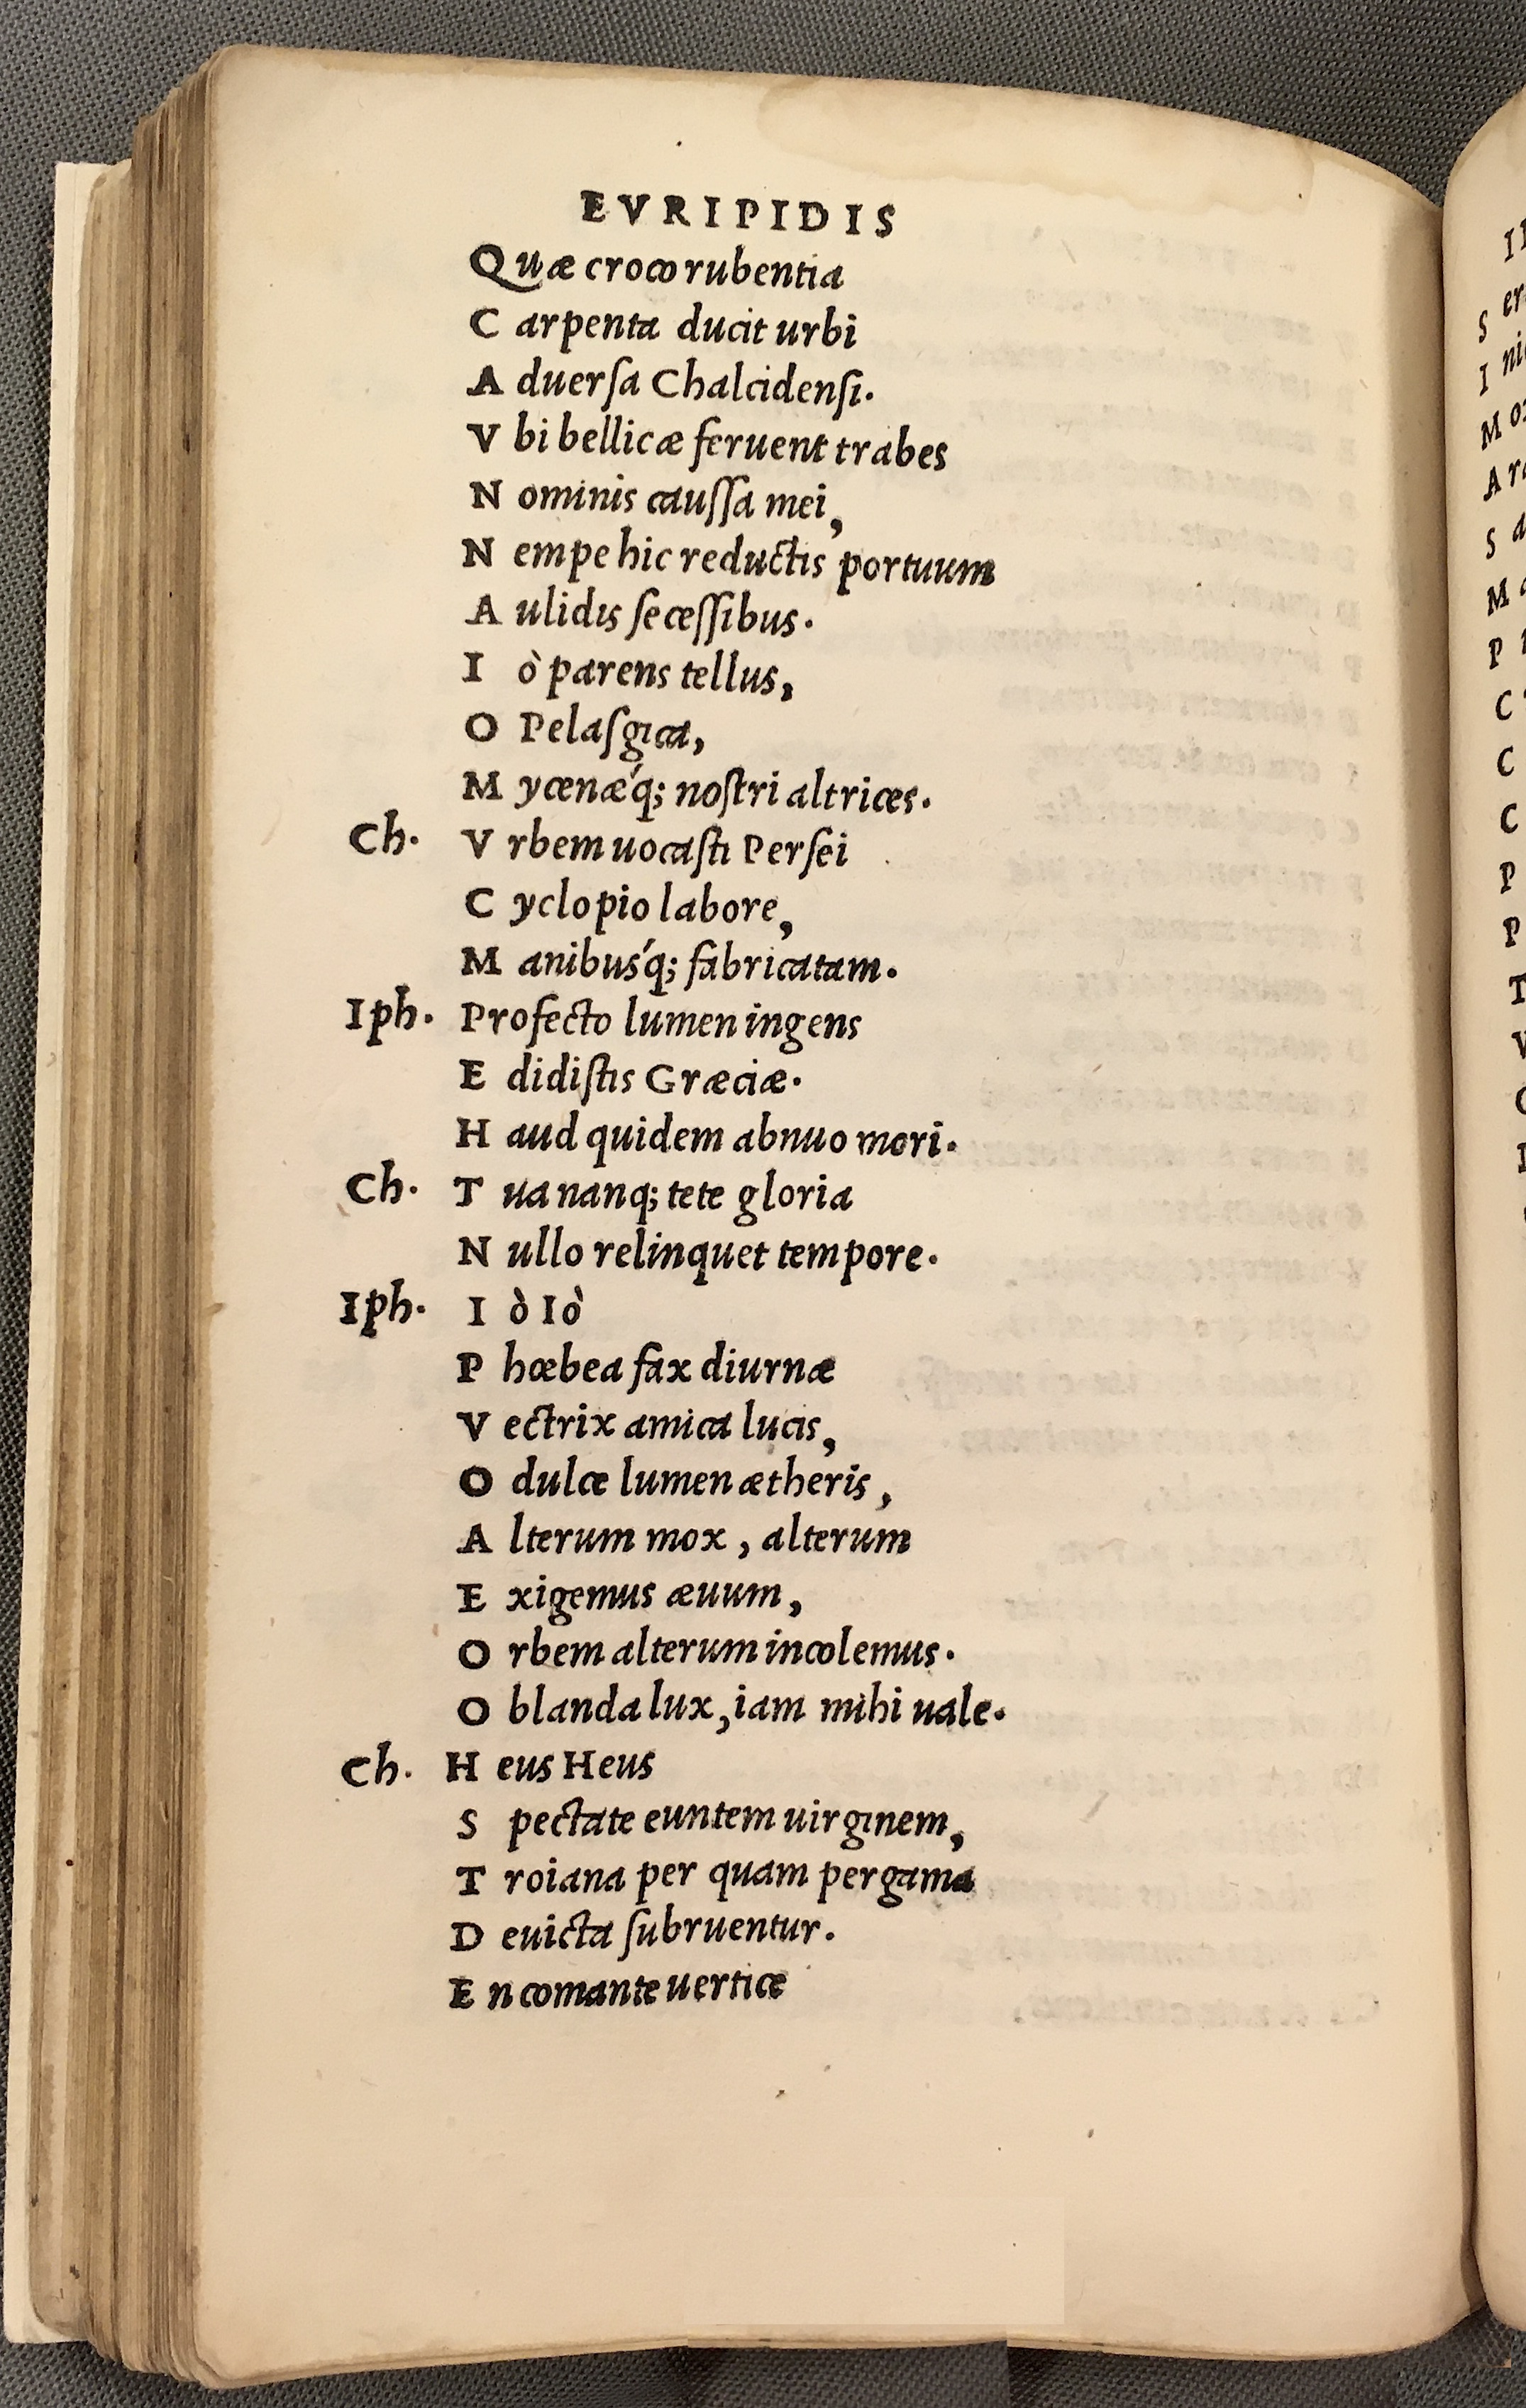 EVRIPIDIS
Quæ croco rubentia
Carpenta ducit urbi
Aduerſa Chalcidenſi.
Vbi bellicæ feruent trabes
Nominis cauſſa mei,
Nempe hic reductis portuum
Aulidis ſeceſſibus.
Iò parens tellus,
O Pelaſgica,
Mycenæ´q; noſtri altrices.
Ch. Vrbem uocaſti Perſei
Cyclopio labore,
Manibus´q; fabricatam.
Iph. Profecto lumen ingens
Edidiſtis Græciæ.
Haud quidem abnuo mori.
Ch. Tua nanq; tete gloria
Nullo relinquet tempore.
Iph. Iò Iò
Phœbea fax diurnæ
Vectrix amica lucis,
O dulce lumen ætheris,
Alterum mox, alterum
Exigemus æuum,
Orbem alterum incolemus.
O blanda lux, iam mihi uale.
Ch. Heus Heus
Spectate euntem uirginem,
Troiana per quam pergama
Deuicta ſubruentur.
En comante uertice